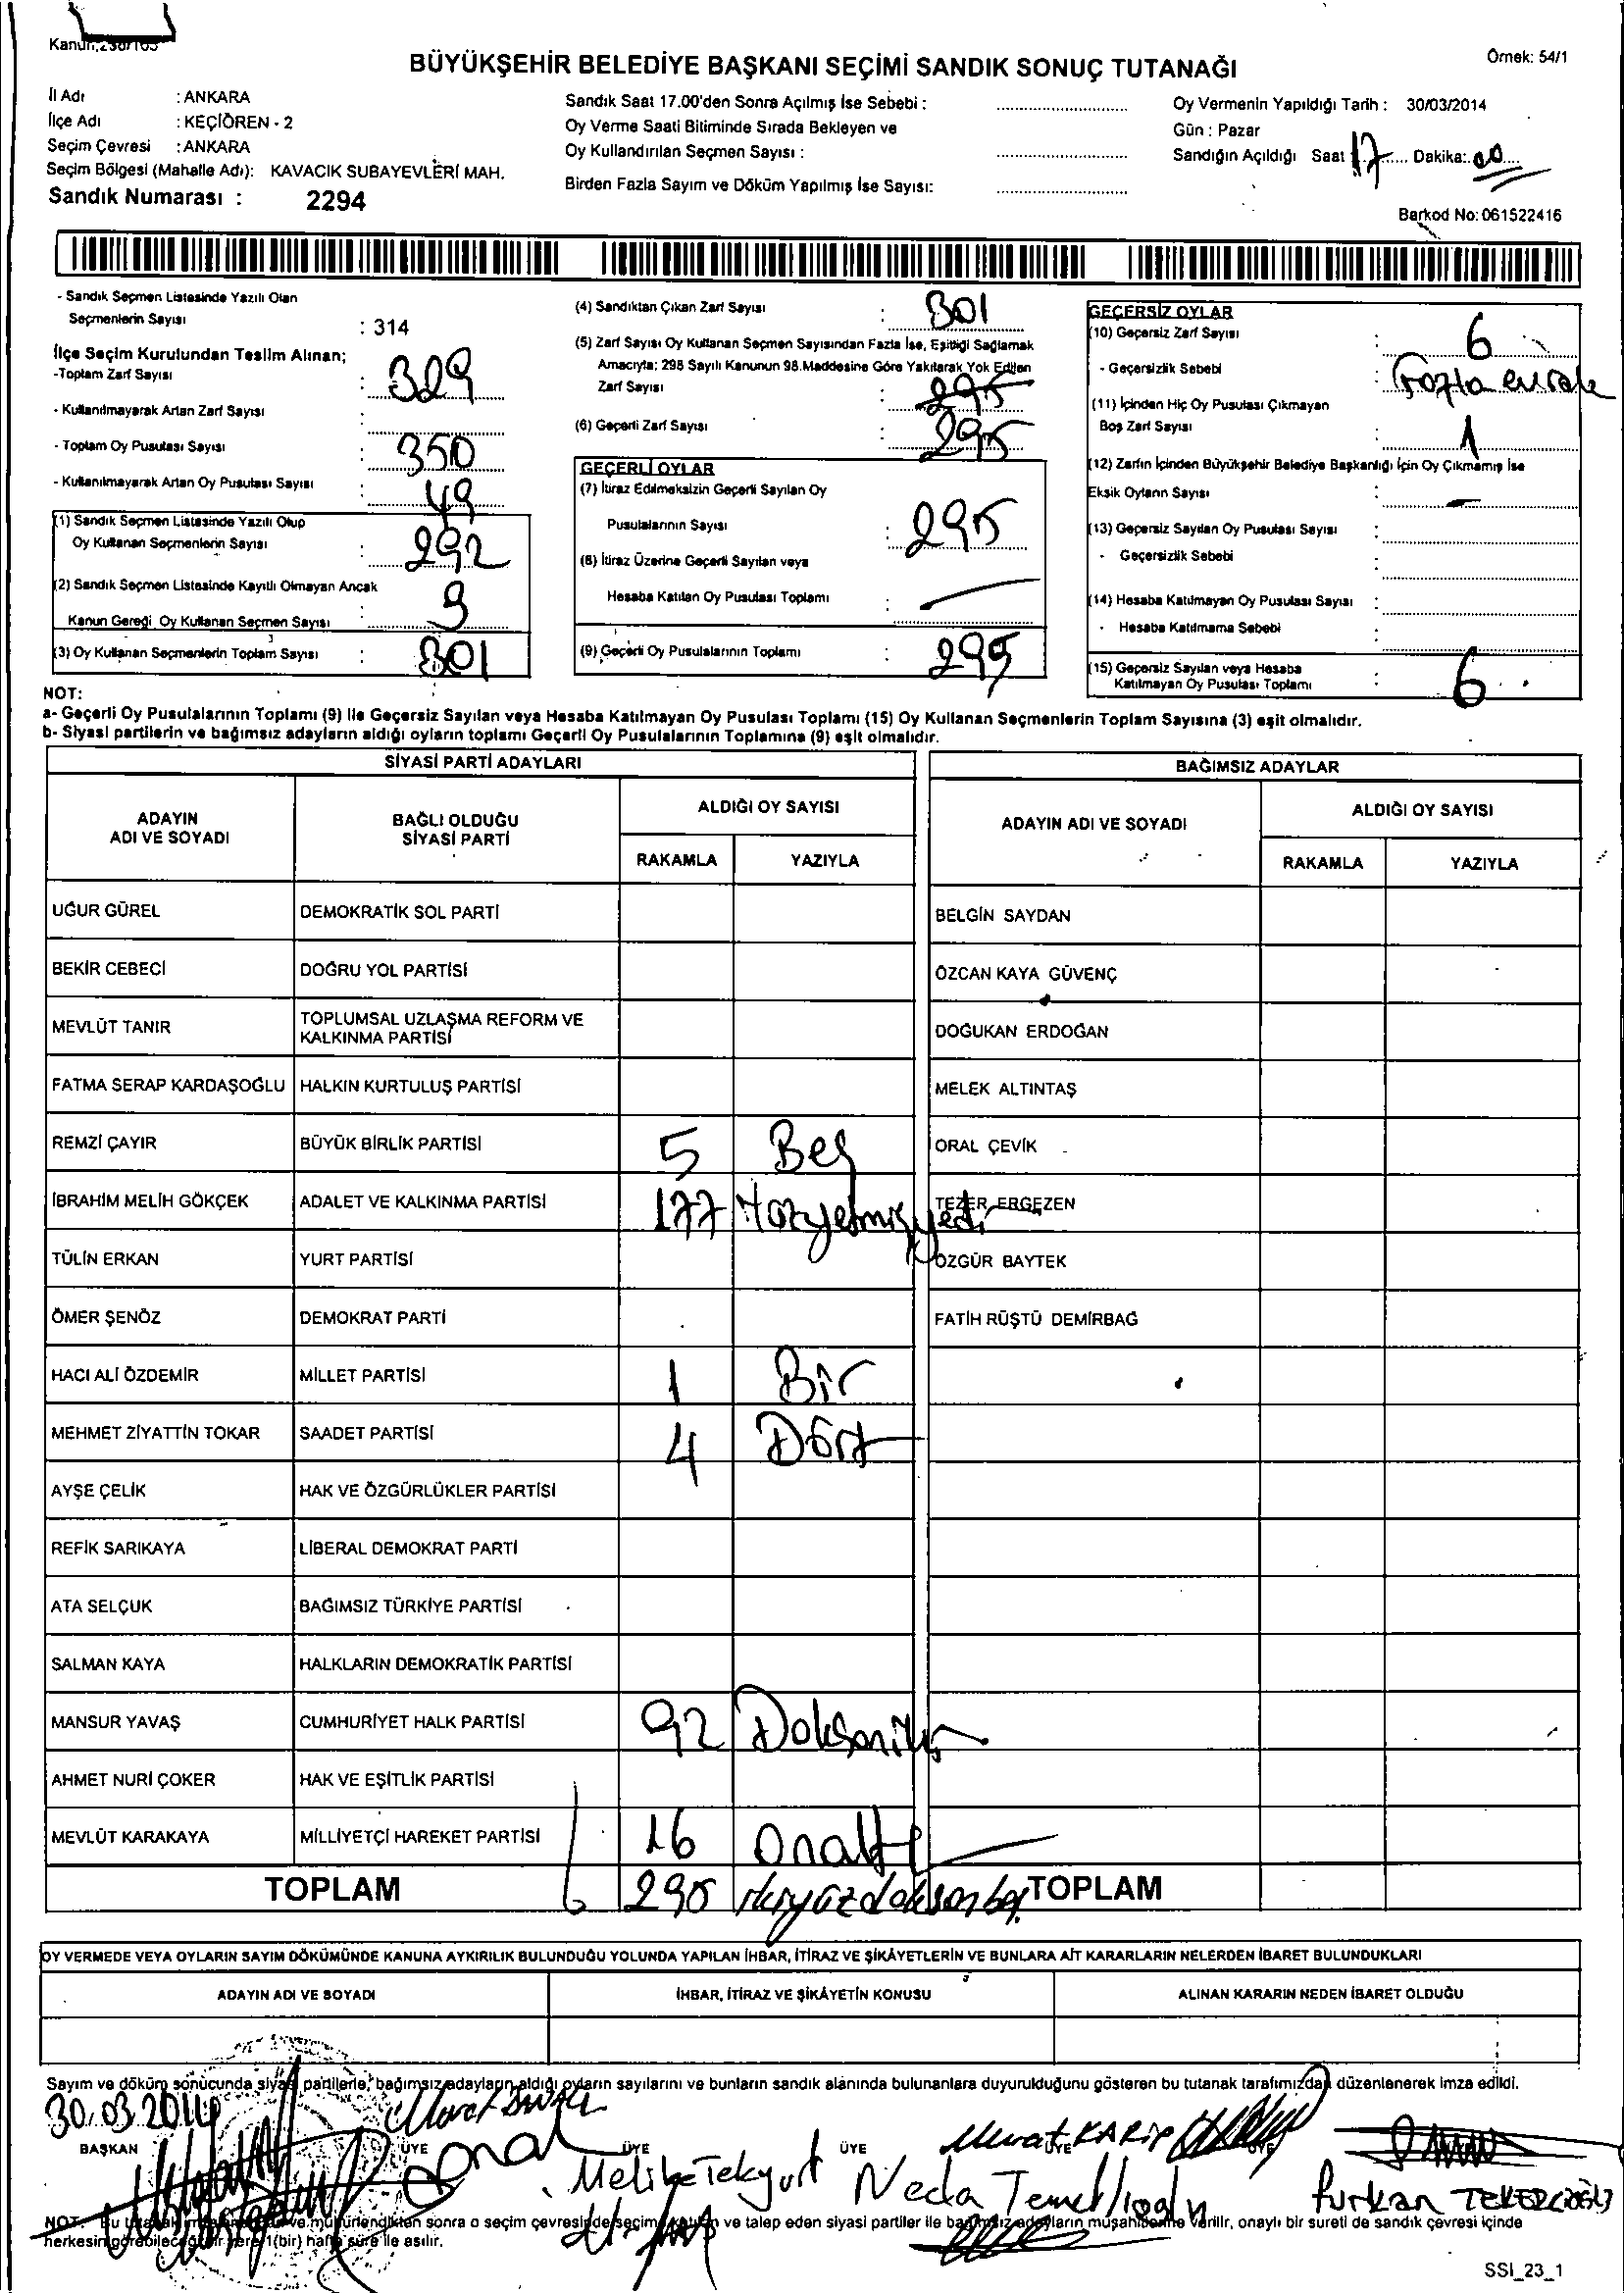 BÜYÜKŞEHİR BELEDİYE BAŞKANI SEÇİMİ SANDIK SONUÇ TUTANAĞI
Örnek: 54/1
İl Adı : ANKARA
İlçe Adı : KEÇİÖREN - 2
Seçim Çevresi : ANKARA
Seçim Bölgesi (Mahalle Adı): KAVACIK SUBAYEVLERİ MAH.
Sandık Numarası : 2294
Sandık Saat 17.00'den Sonra Açılmış İse Sebebi :
Oy Verme Saati Bitiminde Sırada Bekleyen ve
Oy Kullandırılan Seçmen Sayısı :
Birden Fazla Sayım ve Döküm Yapılmış İse Sayısı:
Oy Vermenin Yapıldığı Tarih : 30/03/2014
Gün : Pazar
Sandığın Açıldığı Saat 17 Dakika: 00
Barkod No: 061522416
- Sandık Seçmen Listesinde Yazılı Olan
Seçmenlerin Sayısı : 314
İlçe Seçim Kurulundan Teslim Alınan;
-Toplam Zarf Sayısı : 329
- Kullanılmayarak Artan Zarf Sayısı :
- Toplam Oy Pusulası Sayısı : 350
- Kullanılmayarak Artan Oy Pusulası Sayısı : 49
(1) Sandık Seçmen Listesinde Yazılı Olup
Oy Kullanan Seçmenlerin Sayısı : 292
(2) Sandık Seçmen Listesinde Kayıtlı Olmayan Ancak
Kanun Gereği Oy Kullanan Seçmen Sayısı : 9
(3) Oy Kullanan Seçmenlerin Toplam Sayısı : 301
(4) Sandıktan Çıkan Zarf Sayısı : 301
(5) Zarf Sayısı Oy Kullanan Seçmen Sayısından Fazla İse, Eşitliği Sağlamak
Amacıyla; 298 Sayılı Kanunun 98.Maddesine Göre Yakılarak Yok Edilen
Zarf Sayısı : 295
(6) Geçerli Zarf Sayısı : 295
GEÇERLİ OYLAR
(7) İtiraz Edilmeksizin Geçerli Sayılan Oy
Pusulalarının Sayısı : 295
(8) İtiraz Üzerine Geçerli Sayılan veya
Hesaba Katılan Oy Pusulası Toplamı :
(9) Geçerli Oy Pusulalarının Toplamı : 295
GEÇERSİZ OYLAR
(10) Geçersiz Zarf Sayısı : 6
- Geçersizlik Sebebi : Fazla evrak
(11) İçinden Hiç Oy Pusulası Çıkmayan
Boş Zarf Sayısı : 1
(12) Zarfın İçinden Büyükşehir Belediye Başkanlığı İçin Oy Çıkmamış İse
Eksik Oyların Sayısı : -
(13) Geçersiz Sayılan Oy Pusulası Sayısı :
- Geçersizlik Sebebi :
(14) Hesaba Katılmayan Oy Pusulası Sayısı :
- Hesaba Katılmama Sebebi :
(15) Geçersiz Sayılan veya Hesaba
Katılmayan Oy Pusulası Toplamı : 6
NOT:
a- Geçerli Oy Pusulalarının Toplamı (9) ile Geçersiz Sayılan veya Hesaba Katılmayan Oy Pusulası Toplamı (15) Oy Kullanan Seçmenlerin Toplam Sayısına (3) eşit olmalıdır.
b- Siyasi partilerin ve bağımsız adayların aldığı oyların toplamı Geçerli Oy Pusulalarının Toplamına (9) eşit olmalıdır.
SİYASİ PARTİ ADAYLARI
ADAYIN ADI VE SOYADI
BAĞLI OLDUĞU SİYASİ PARTİ
ALDIĞI OY SAYISI
RAKAMLA YAZIYLA
UĞUR GÜREL DEMOKRATİK SOL PARTİ
BEKİR CEBECİ DOĞRU YOL PARTİSİ
MEVLÜT TANIR TOPLUMSAL UZLAŞMA REFORM VE KALKINMA PARTİSİ
FATMA SERAP KARDAŞOĞLU HALKIN KURTULUŞ PARTİSİ
REMZİ ÇAYIR BÜYÜK BİRLİK PARTİSİ 5 Beş
İBRAHİM MELİH GÖKÇEK ADALET VE KALKINMA PARTİSİ 177 Yüzyetmişyedi
TÜLİN ERKAN YURT PARTİSİ
ÖMER ŞENÖZ DEMOKRAT PARTİ
HACI ALİ ÖZDEMİR MİLLET PARTİSİ 1 Bir
MEHMET ZİYATTİN TOKAR SAADET PARTİSİ 4 Dört
AYŞE ÇELİK HAK VE ÖZGÜRLÜKLER PARTİSİ
REFİK SARIKAYA LİBERAL DEMOKRAT PARTİ
ATA SELÇUK BAĞIMSIZ TÜRKİYE PARTİSİ
SALMAN KAYA HALKLARIN DEMOKRATİK PARTİSİ
MANSUR YAVAŞ CUMHURİYET HALK PARTİSİ 92 Doksaniki
AHMET NURİ ÇOKER HAK VE EŞİTLİK PARTİSİ
MEVLÜT KARAKAYA MİLLİYETÇİ HAREKET PARTİSİ 16 Onaltı
TOPLAM 295 ikiyüzdoksanbeş
BAĞIMSIZ ADAYLAR
ADAYIN ADI VE SOYADI
ALDIĞI OY SAYISI
RAKAMLA YAZIYLA
BELGİN SAYDAN
ÖZCAN KAYA GÜVENÇ
DOĞUKAN ERDOĞAN
MELEK ALTINTAŞ
ORAL ÇEVİK
TEZER ERGEZEN
ÖZGÜR BAYTEK
FATİH RÜŞTÜ DEMİRBAĞ
TOPLAM
OY VERMEDE VEYA OYLARIN SAYIM DÖKÜMÜNDE KANUNA AYKIRILIK BULUNDUĞU YOLUNDA YAPILAN İHBAR, İTİRAZ VE ŞİKÂYETLERİN VE BUNLARA AİT KARARLARIN NELERDEN İBARET BULUNDUKLARI
ADAYIN ADI VE SOYADI
İHBAR, İTİRAZ VE ŞİKÂYETİN KONUSU
ALINAN KARARIN NEDEN İBARET OLDUĞU
Sayım ve döküm sonucunda siyasi partilerle, bağımsız adayların aldığı oyların sayılarını ve bunların sandık alanında bulunanlara duyurulduğunu gösteren bu tutanak tarafımızdan düzenlenerek imza edildi.
30.03.2014
BAŞKAN ÜYE ÜYE ÜYE ÜYE ÜYE
Murat
Önal
Melike Tekyurt
Neda
Murat
Furkan
NOT: Bu tutanak ve mühürlendikten sonra o seçim çevresinde seçim ve talep eden siyasi partiler ile bağımsız adayların müşahitlerine verilir, onaylı bir sureti de sandık çevresi içinde
herkesin görebileceği bir yere 1(bir) hafta süre ile asılır.
SSI_23_1